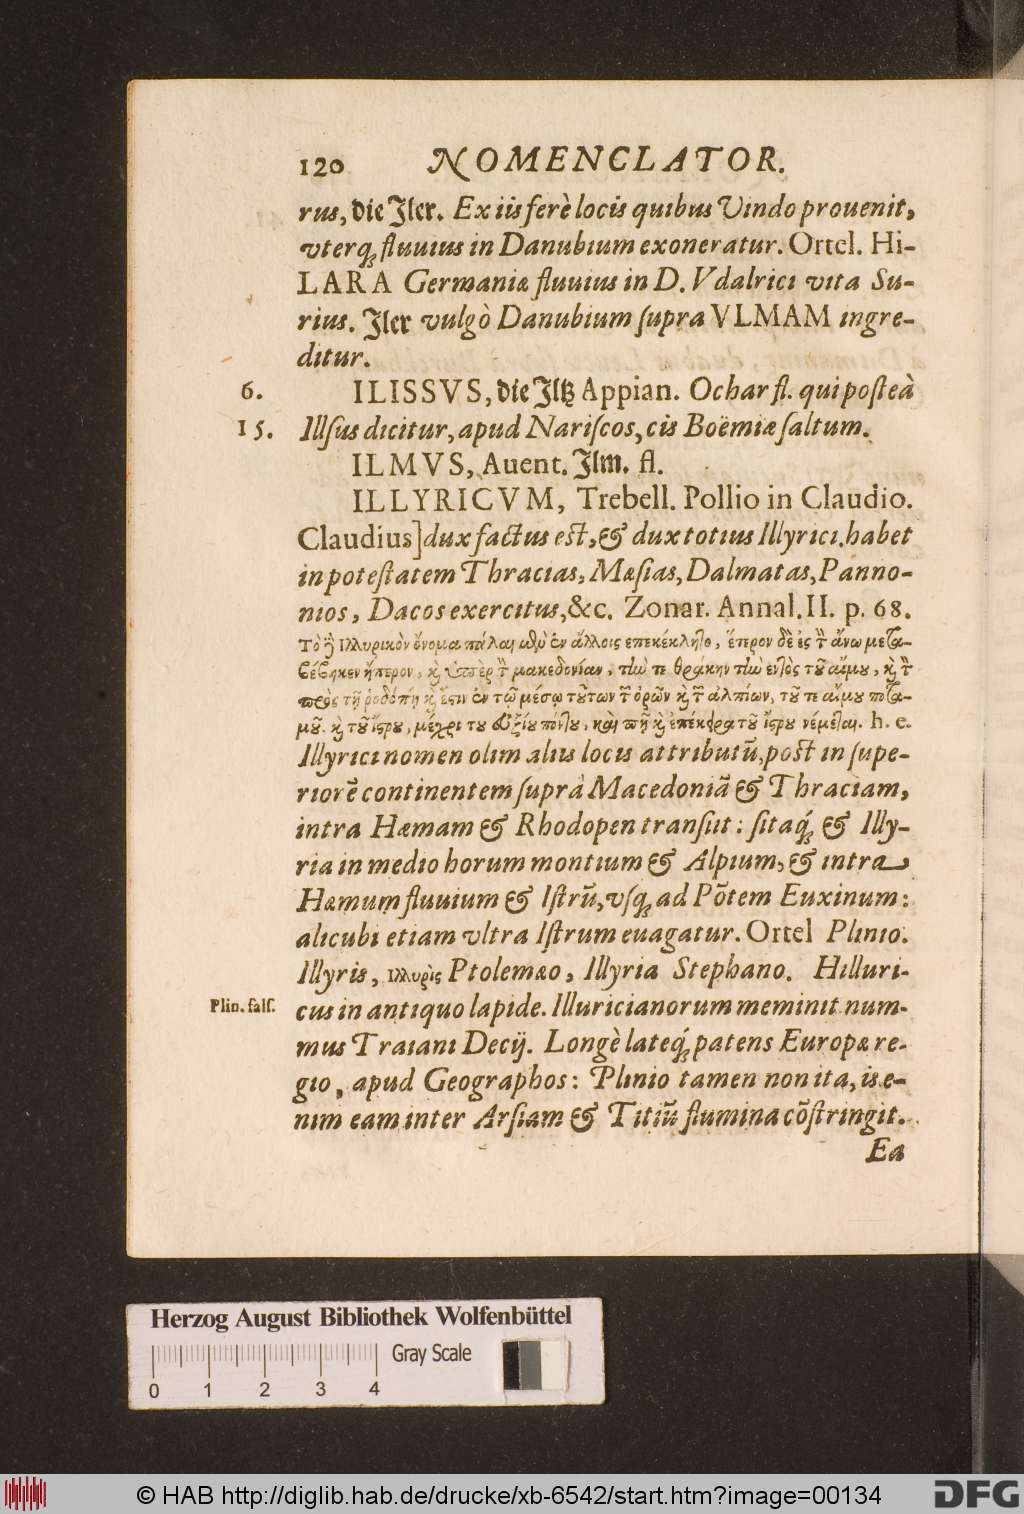 120 NOMENCLATOR.
rus, die Jler. Ex iis ferè locis quibus Vindo prouenit,
vterq́ꝫ fluuius in Danubium exoneratur. Ortel. HI-
LARA Germaniæ fluuius in D. Vdalrici vita Su-
rius. Jler vulgò Danubium ſupra VLMAM ingre-
ditur.
6. ILISSVS, die Jltz Appian. Ochar fl. qui poſteà
15. Illſus dicitur, apud Nariſcos, cis Boëmiæ ſaltum.
ILMVS, Auent. Jlm. fl.
ILLYRICVM, Trebell. Pollio in Claudio.
Claudius] dux factus est, & dux totius Illyrici. habet
in poteſtatem Thracias, Mæſias, Dalmatas, Panno-
nios, Dacos exercitus, &c. Zonar. Annal. II. p. 68.
Τὸ ἢ Ιλλυρικὸν ὄνομα πάλαι μὲν ἐν ἄλλοις επεκέκλητο, ἕτερον δὲ ἐς τ̃ ἄνω μετα-
βέβηκεν ἤπερον, κỳ ὑπὲρ τ̃ μακεδονίαν, τίω τε θράκην τίω ἐντὸς τοῦ αἵμου, κỳ τ̃
πρὸς τῇ ῥοδόπῃ κỳ ἔστιν ἐν τῷ μέσῳ τούτων τ̃ ὀρῶν κỳ τ̃ αλπίων, τοῦ τε αἵμου ποτα-
μοῦ. κỳ τοῦ ἴστρου, μέχρι του εὐξίου πόντου, καὶ πῆ κỳ ἐπέκεινα τοῦ ἴστρου νέμεται. h. e.
Illyrici nomen olim aliis locis attributũ, post in ſupe-
riorẽ continentem ſuprà Macedoniã & Thraciam,
intra Hæmam & Rhodopen tranſiit: ſitaq́ꝫ & Illy-
ria in medio horum montium & Alpium, & intra
Hæmum fluuium & Iſtrũ, vſqꝫ ad Põtem Euxinum:
alicubi etiam vltra Iſtrum euagatur. Ortel Plinio.
Illyris, Ιλλυρὶς Ptolemæo, Illyria Stephano. Hilluri-
Plin. falſ. cus in antiquo lapide. Illuricianorum meminit num-
mus Traiani Decij. Longè lateq́ꝫ patens Europæ re-
gio, apud Geographos: Plinio tamen non ita, is e-
nim eam inter Arſiam & Titiũ flumina cõſtringit.
Ea
Herzog August Bibliothek Wolfenbüttel
Gray Scale
0 1 2 3 4
© HAB http://diglib.hab.de/drucke/xb-6542/start.htm?image=00134
DFG